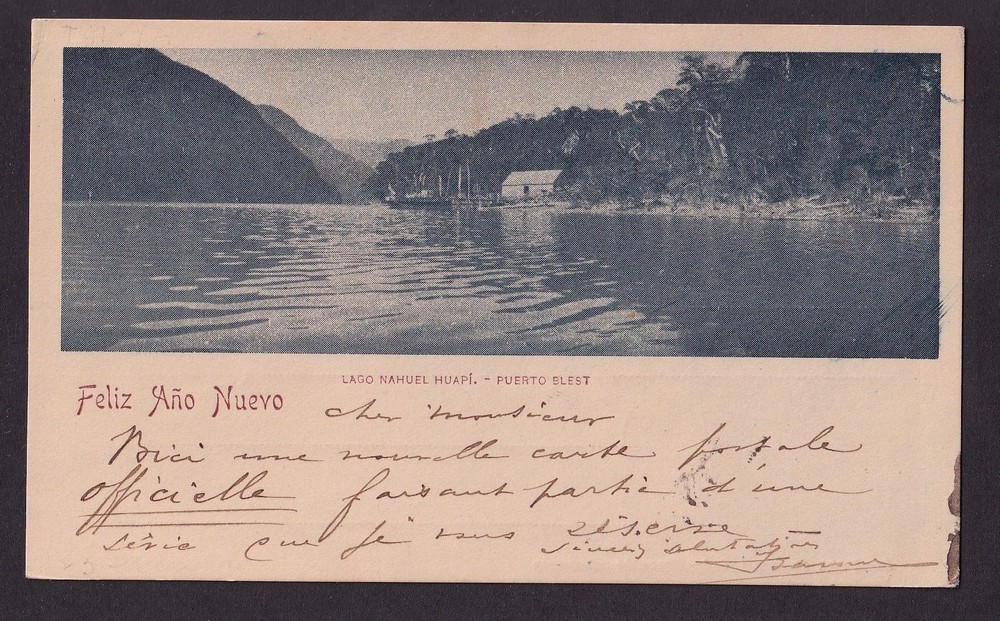 LAGO NAHUEL HUAPÍ. - PUERTO BLEST
Feliz Año Nuevo
cher monsieur
Bici une nouvelle carte postale
officielle faisant partie d'une
série que je vous réserve